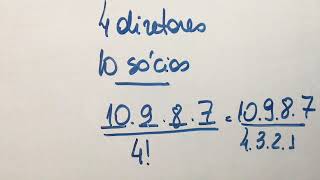 4 diretores
10 sócios
10.9.8.7/4! = 10.9.8.7/4.3.2.1